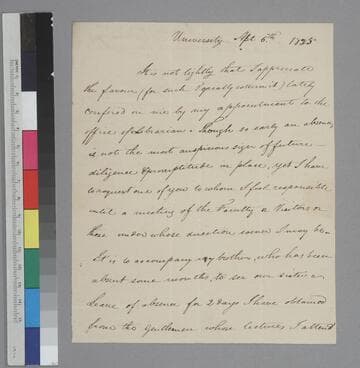 University Apl 6th 1825
It is not lightly that I appreciate
the favour (for such I greatly esteem it) lately
confered on me by my appointment to the
office of Librarian & though so early an absence
is not the most auspicious sign of future
diligence & promptitude in place, yet I have
to request one of you to whom I feel responsible
until a meeting of the Faculty or Visitors or
those under whose direction soever I may be.
It is to accompany my brother, who has been
absent some months, to see our sister. a
Leave of absence for 2 days I have obtained
from the gentlemen whose lectures I attend